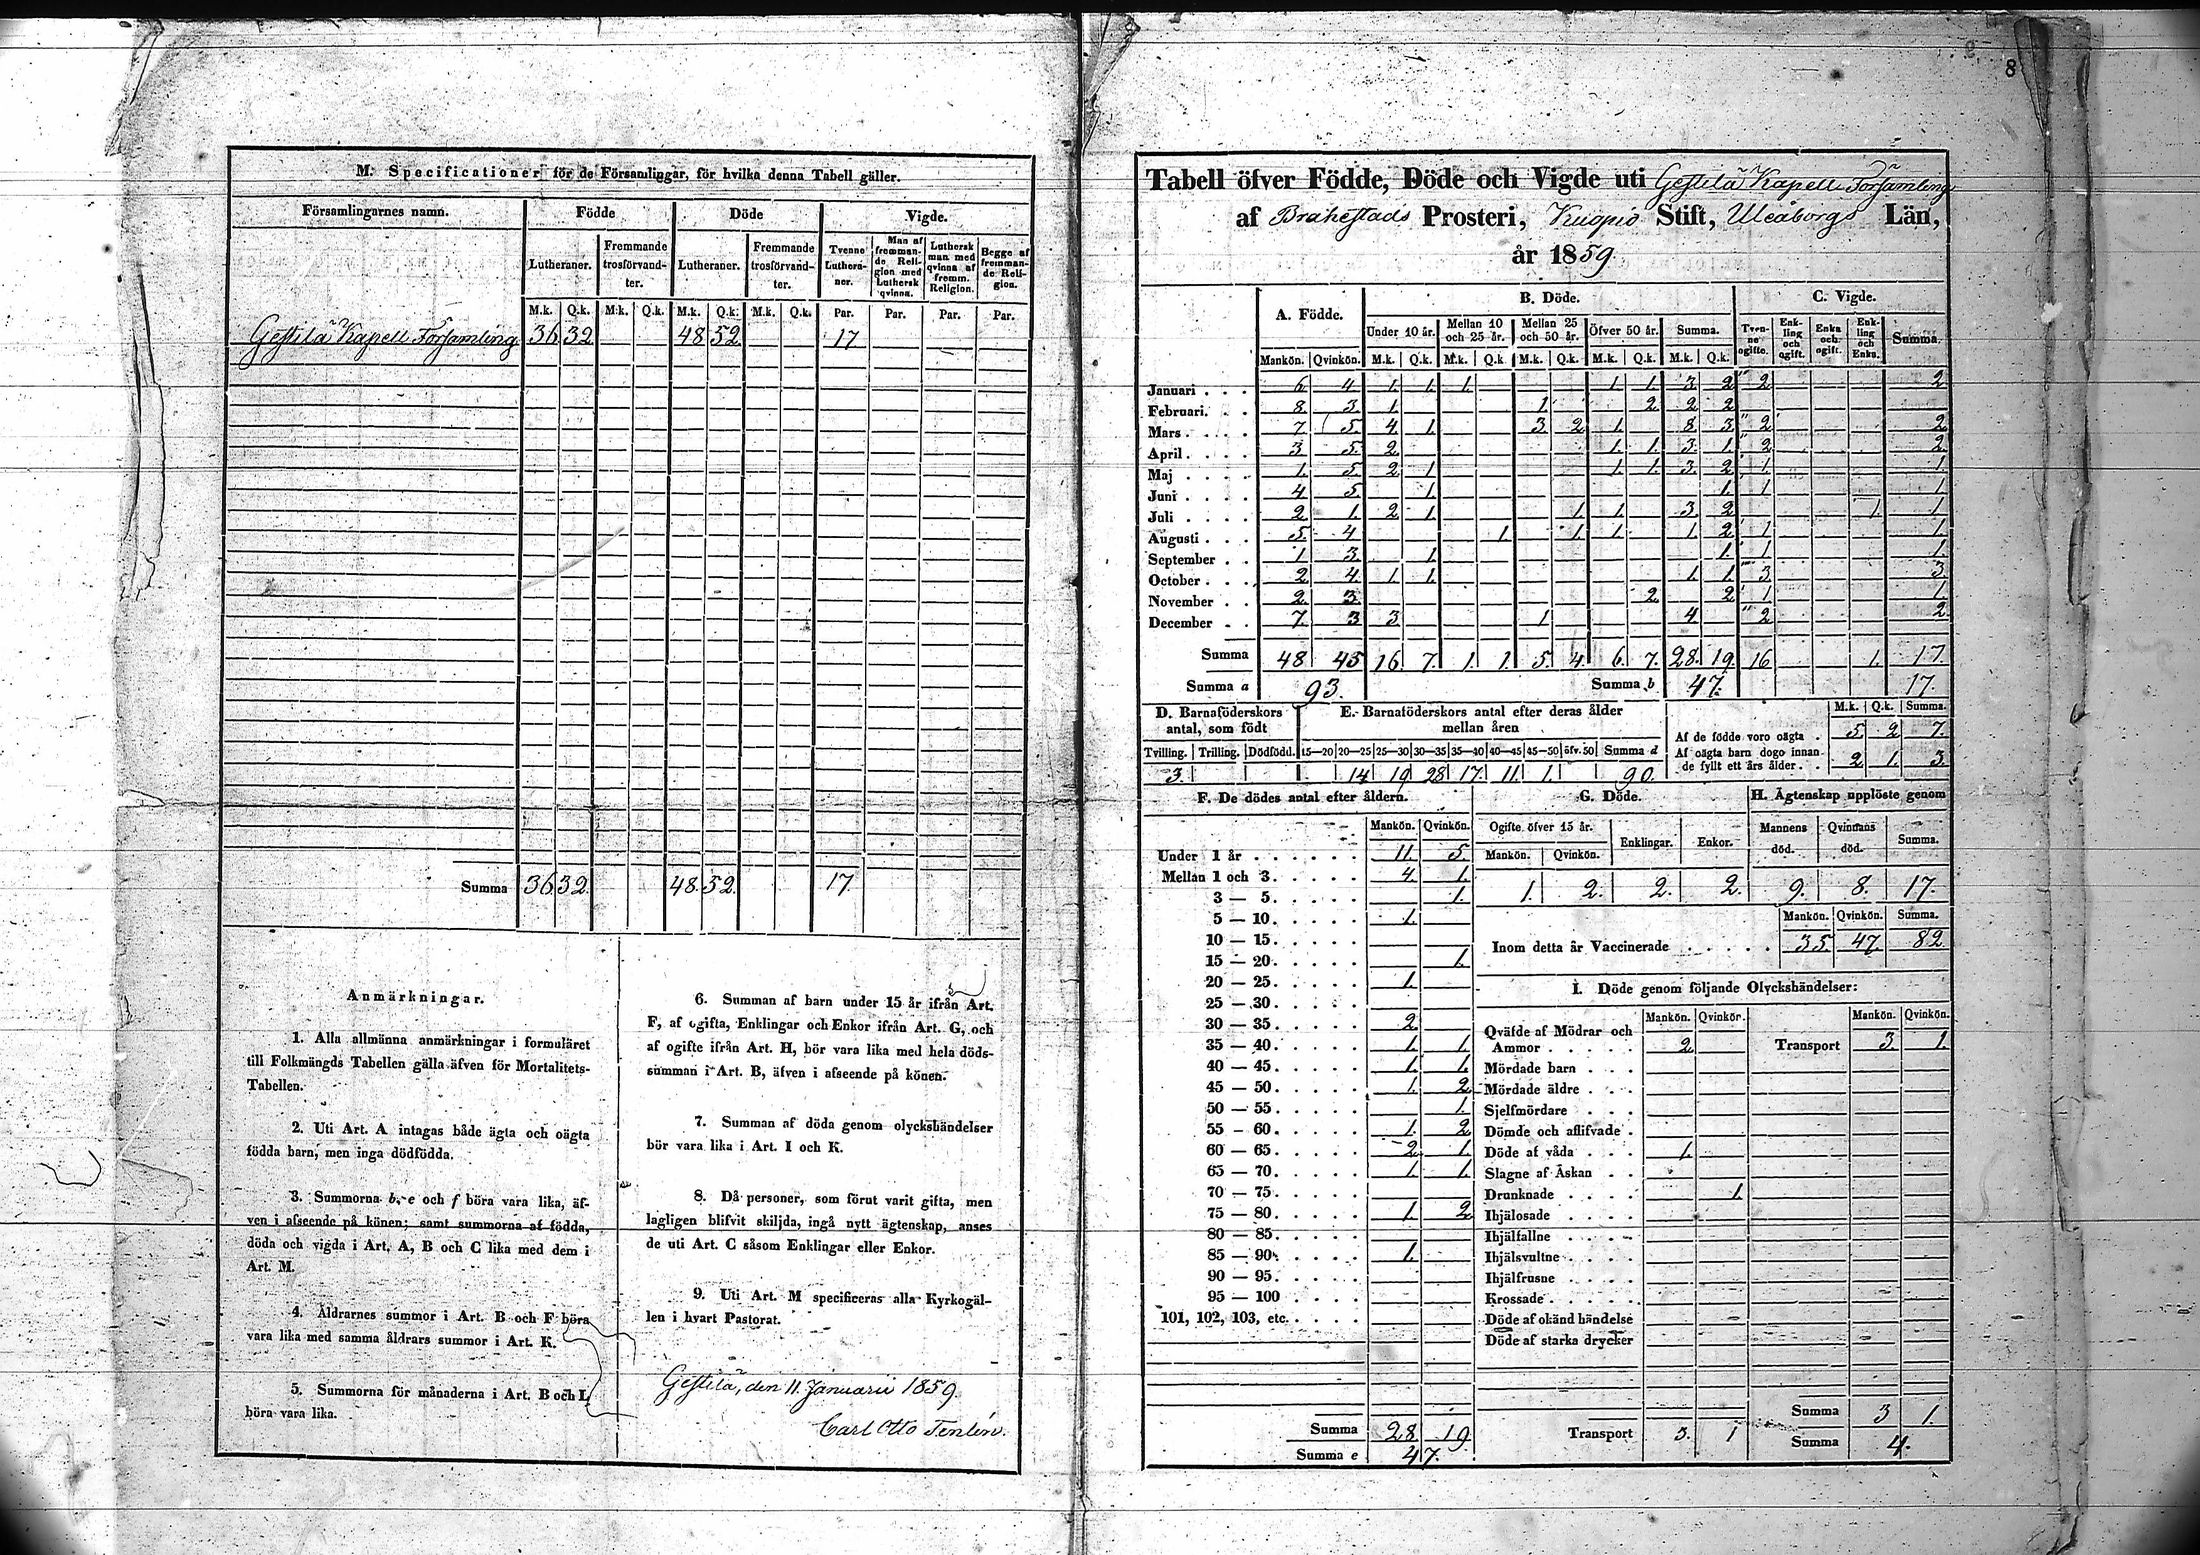 M. Specificationer för de Församlingar, för hvilka denna Tabell gäller.
Församlingarnes namn. Födde Döde Vigde.
Lutheraner. Fremmande trosförvandter. Lutheraner. Fremmande trosförvandter. Tvenne Lutheraner. Man af fremmande Religion med Luthersk qvinna. Luthersk man med qvinna af fremm. Religion. Begge af fremmande Religion.
M.k. Q.k. M.k. Q.k. M.k. Q.k. M.k. Q.k. Par. Par. Par. Par.
Gestilä Kapell Församling 36 32 48 52 17
Summa 36 32. 48. 52. 17.
Anmärkningar.
1. Alla allmänna anmärkningar i formuläret
till Folkmängds Tabellen gälla äfven för Mortalitets-
Tabellen.
2. Uti Art. A intagas både ägta och oägta
födda barn, men inga dödfödda.
3. Summorna b, e och f böra vara lika, äf-
ven i afseende på könen; samt summorna af födda,
döda och vigda i Art. A, B och C lika med dem i
Art. M.
4. Åldrarnes summor i Art. B och F böra
vara lika med samma åldrars summor i Art. K.
5. Summorna för månaderna i Art. B och L
böra vara lika.
6. Summan af barn under 15 år ifrån Art.
F, af ogifta, Enklingar och Enkor ifrån Art. G, och
af ogifte ifrån Art. H, bör vara lika med hela döds-
summan i Art. B, äfven i afseende på könen.
7. Summan af döda genom olyckshändelser
bör vara lika i Art. I och K.
8. Då personer, som förut varit gifta, men
lagligen blifvit skiljda, ingå nytt ägtenskap, anses
de uti Art. C såsom Enklingar eller Enkor.
9. Uti Art. M specificeras alla Kyrkogäl-
len i hvart Pastorat.
Gestilä, den 11. Januarii 1859.
Carl Otto Tenlén.
8
Tabell öfver Födde, Döde och Vigde uti Gestilä Kapell Församling
af Brahestads Prosteri, Kuopio Stift, Uleåborgs Län,
år 1859.
A. Födde. B. Döde. C. Vigde.
Under 10 år. Mellan 10 och 25 år. Mellan 25 och 50 år. Öfver 50 år. Summa. Tvenne ogifte. Enkling och ogift. Enka och ogift. Enkling och Enka. Summa.
Mankön. Qvinkön. M.k. Q.k. M.k. Q.k. M.k. Q.k. M.k. Q.k. M.k. Q.k.
Januari . . . 6. 4 1. 1. 1. 1. 1. 3. 2 2 2.
Februari. . . 8. 3. 1. 1. 2 2 2
Mars . . . . 7. 5. 4. 1. 3 2 1. 8. 3. 2 2.
April . . . . 3 5. 2. 1. 1. 3. 1. 2 2.
Maj . . . . 1. 5. 2. 1 1. 1. 3. 2 1. 1.
Juni . . . . 4 5. 1. 1. 1 1.
Juli . . . . 2. 1. 2. 1. 1. 1. 3. 2 1. 1
Augusti . . . 5. 4 1 1. 1. 1. 2 1 1.
September . . 1. 3. 1. 1. 1 1.
October . . . 2 4. 1. 1. 1. 1. 3. 3.
November . . 2. 3. 2. 2 1 1.
December . . 7. 3 3. 1 4 2 2.
Summa 48 45 16. 7. 1. 1. 5. 4. 6. 7. 28. 19. 16 1. 17
Summa a 93. Summa b 47. 17.
D. Barnaföderskors antal, som födt
Tvilling. Trilling. Dödfödd.
3.
E. Barnaföderskors antal efter deras ålder mellan åren
15—20 20—25 25—30 30—35 35—40 40—45 45—50 öfv. 50 Summa d
14 19 28 17. 11. 1. 90.
M.k. Q.k. Summa.
Af de födde voro oägta . 5. 2 7.
Af oägta barn dogo innan-
de fyllt ett års ålder . . 2 1. 3.
F. De dödes antal efter åldern.
Mankön. Qvinkön.
Under 1 år . . . . . . 11. 5.
Mellan 1 och 3. . . . . 4. 1.
3 — 5. . . . . 1.
5 — 10. . . . . 1.
10 — 15. . . . .
15 — 20. . . . . 1.
20 — 25. . . . . 1.
25 — 30. . . . .
30 — 35. . . . . 2.
35 — 40. . . . . 1. 1.
40 — 45. . . . . 1. 1.
45 — 50. . . . . 1. 2
50 — 55. . . . . 1.
55 — 60. . . . . 1. 2
60 — 65. . . . . 2 1.
65 — 70. . . . . 1. 1.
70 — 75. . . . .
75 — 80. . . . . 1. 2
80 — 85. . . . .
85 — 90. . . . . 1.
90 — 95. . . . .
95 — 100 . . . .
101, 102, 103, etc. . . . .
Summa 28. 19
Summa e 47.
G. Döde.
Ogifte öfver 15 år. Enklingar. Enkor.
Mankön. Qvinkön.
1. 2. 2. 2.
H. Ägtenskap upplöste genom
Mannens död. Qvinnans död. Summa.
9. 8. 17.
Mankön. Qvinkön. Summa.
Inom detta år Vaccinerade . . . . . 35. 47. 82
I. Döde genom följande Olyckshändelser:
Mankön. Qvinkön. Mankön. Qvinkön.
Qväfde af Mödrar och
Ammor . . . . . 2. Transport 3. 1.
Mördade barn . . .
Mördade äldre . . .
Sjelfmördare . . .
Dömde och aflifvade .
Döde af våda . . . 1.
Slagne af Åskan . .
Drunknade . . . . 1.
Ihjälosade . . . .
Ihjälfallne . . . .
Ihjälsvultne . . . .
Ihjälfrusne . . . .
Krossade . . . . .
Döde af okänd händelse
Döde af starka drycker
Summa 3 1.
Transport 3. 1 Summa 4.